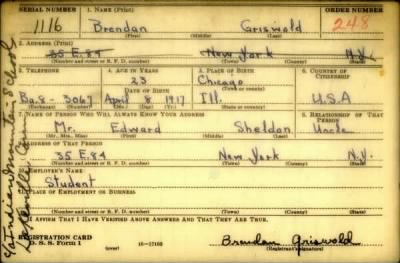 SERIAL NUMBER 1. NAME (Print) ORDER NUMBER
1116 Brendan Griswold 248
(First) (Middle) (Last)
2. ADDRESS (Print)
35 E. 84 New York N.Y.
(Number and street or R. F. D. number) (Town) (County) (State)
3. TELEPHONE 4. AGE IN YEARS 5. PLACE OF BIRTH 6. COUNTRY OF CITIZENSHIP
23 Chicago
DATE OF BIRTH (Town or county)
Ba. 8-3067 April 8 1917 Ill. U.S.A
(Exchange) (Number) (Mo.) (Day) (Yr.) (State or country)
7. NAME OF PERSON WHO WILL ALWAYS KNOW YOUR ADDRESS 8. RELATIONSHIP OF THAT PERSON
Mr. Edward Sheldon Uncle
(Mr., Mrs., Miss) (First) (Middle) (Last)
9. ADDRESS OF THAT PERSON
35 E. 84 New York N.Y.
(Number and street or R. F. D. number) (Town) (County) (State)
10. EMPLOYER'S NAME
Student
11. PLACE OF EMPLOYMENT OR BUSINESS
(Number and street or R. F. D. number) (Town) (County) (State)
I AFFIRM THAT I HAVE VERIFIED ABOVE ANSWERS AND THAT THEY ARE TRUE.
REGISTRATION CARD
D. S. S. Form 1 (over) 16-17105 Brendan Griswold
(Registrant's signature)
Indian Mountain School
Conn.